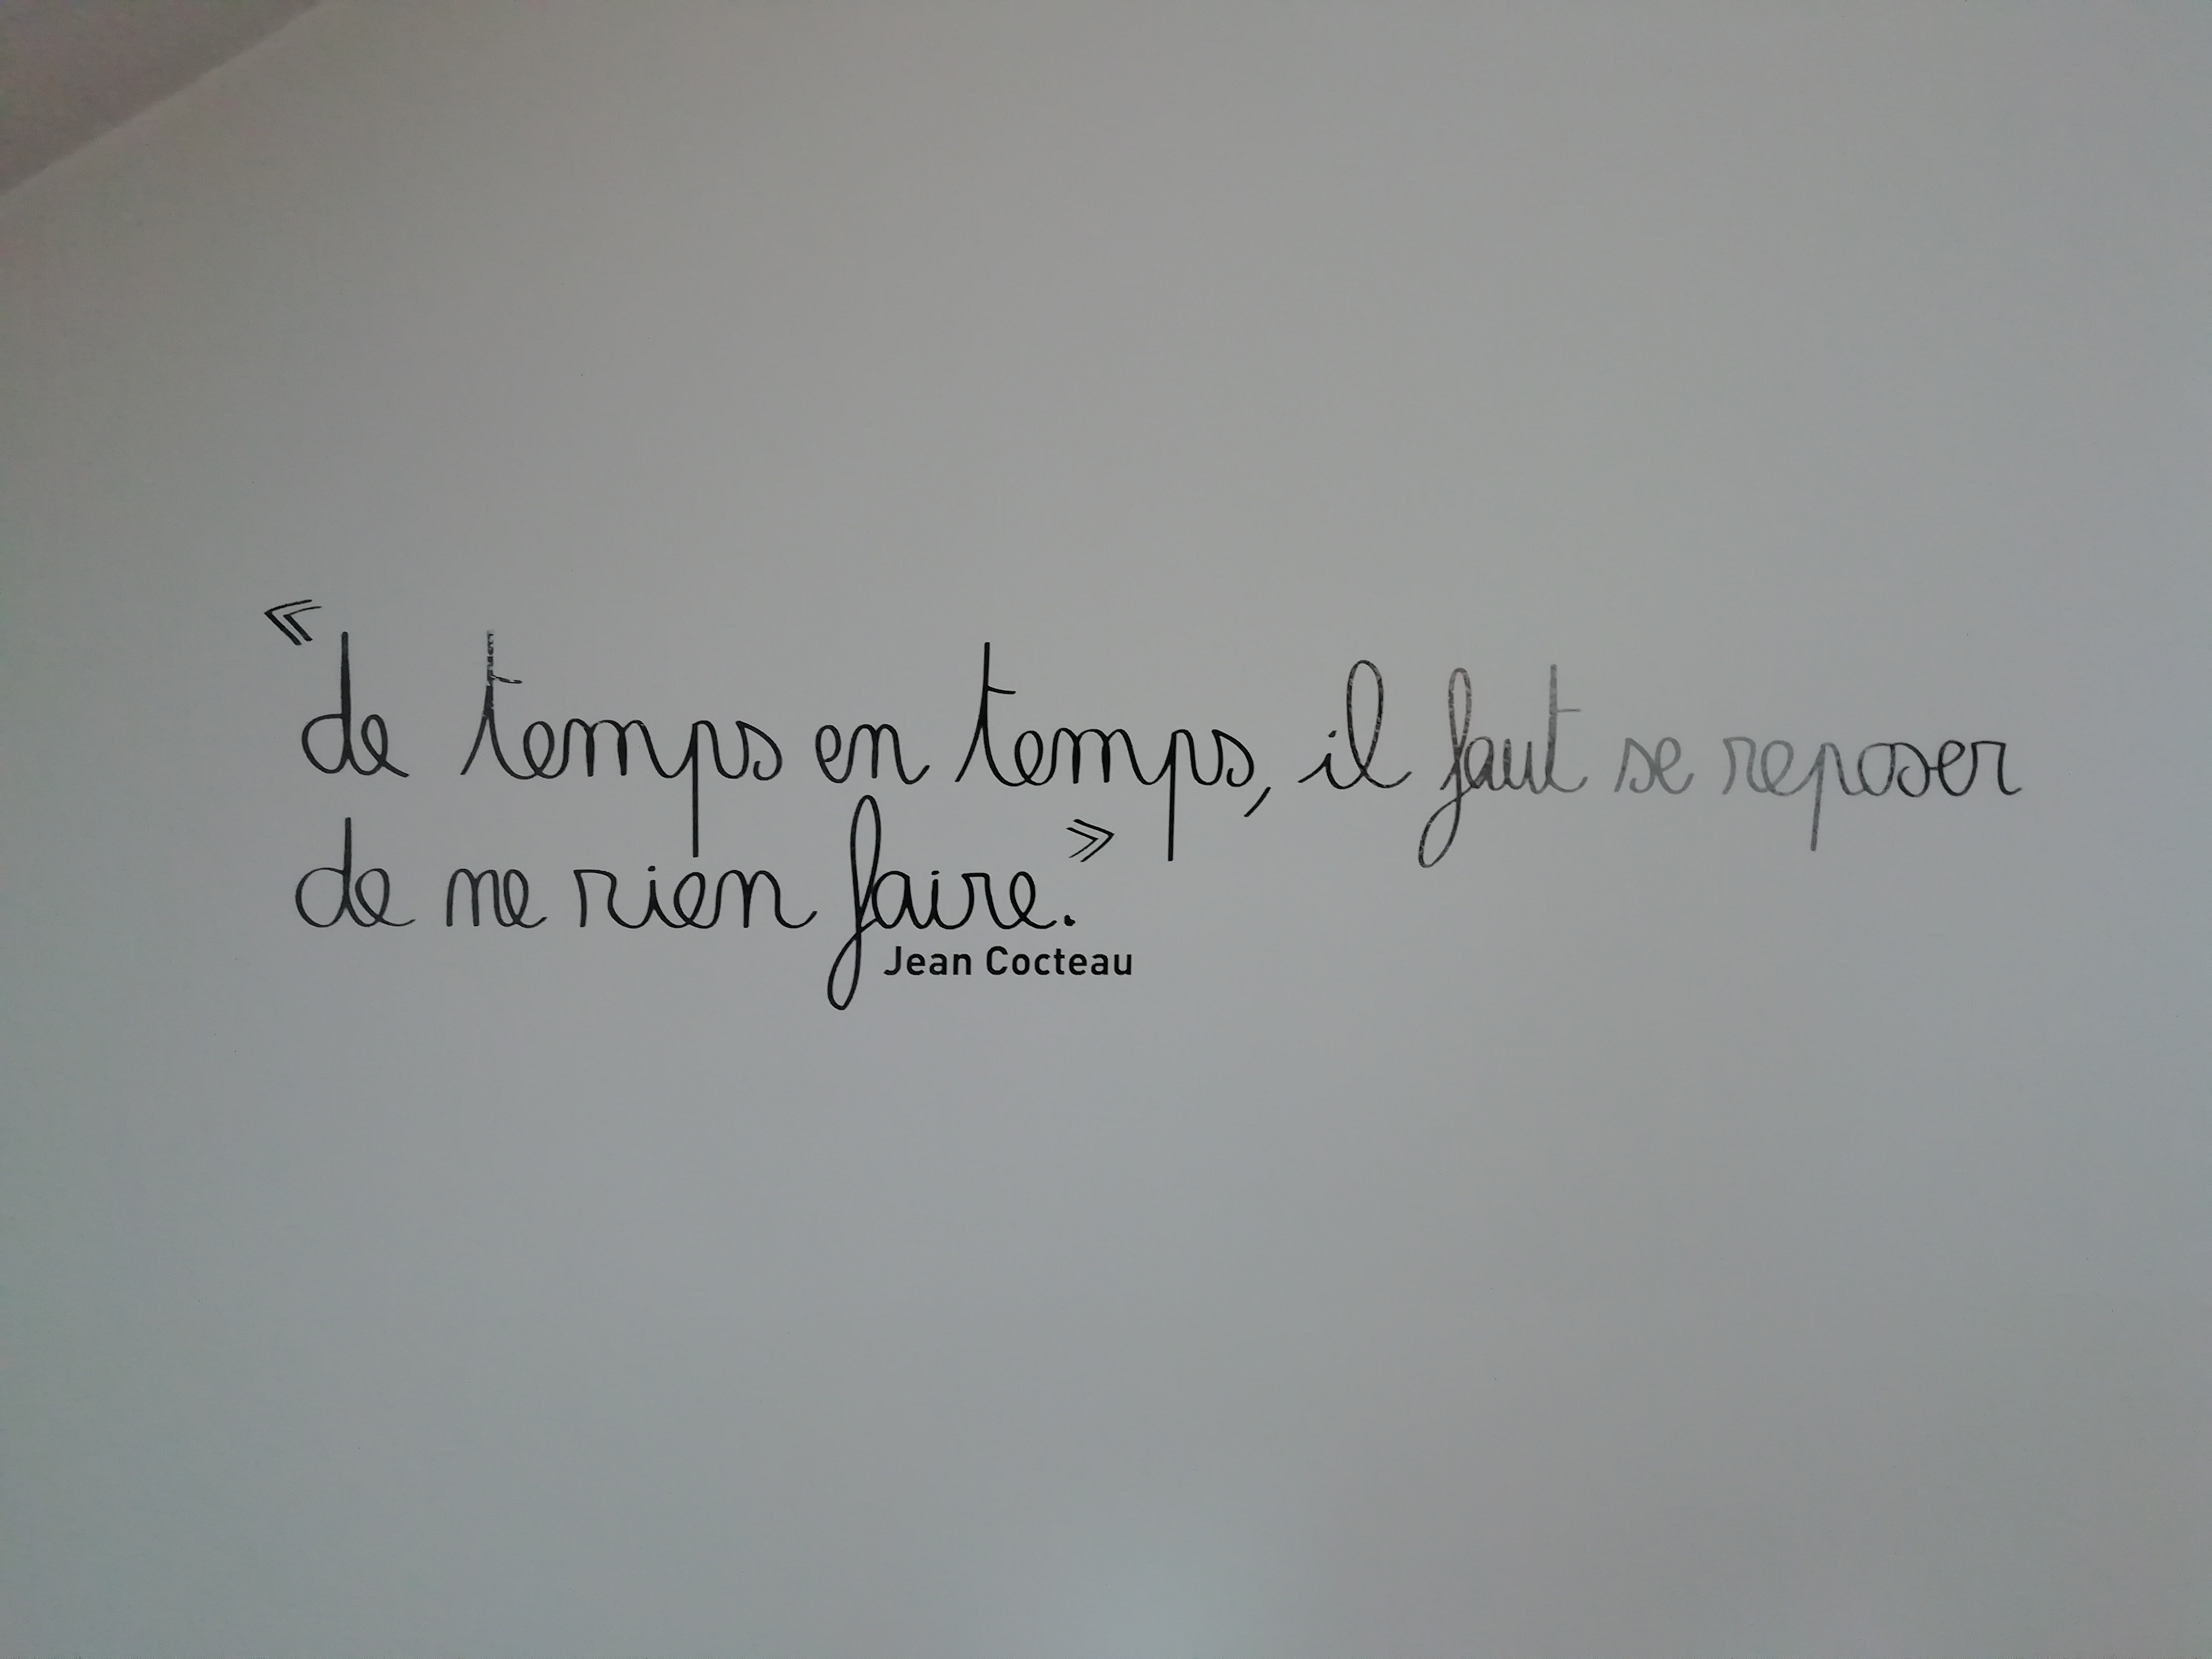 « de temps en temps, il faut se reposer
de ne rien faire. »
Jean Cocteau